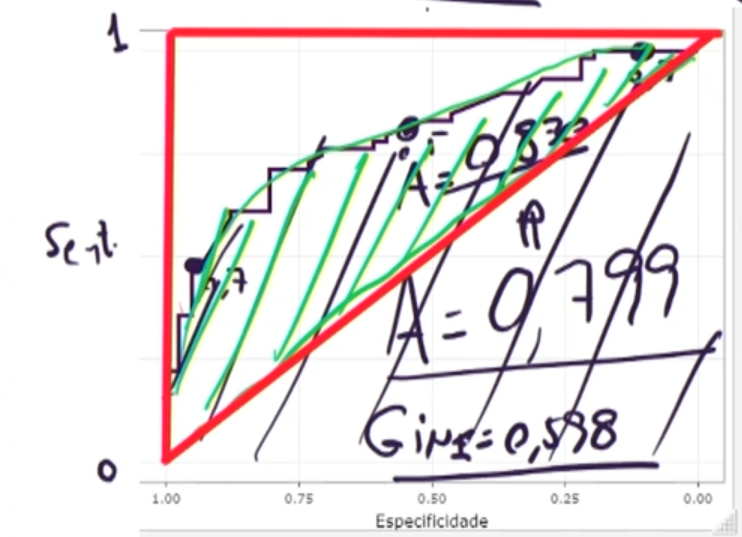 1
Sent.
0,5
A = 0,872
0,7
A = 0,799
Gini = 0,598
0
1.00 0.75 0.50 0.25 0.00
Especificidade